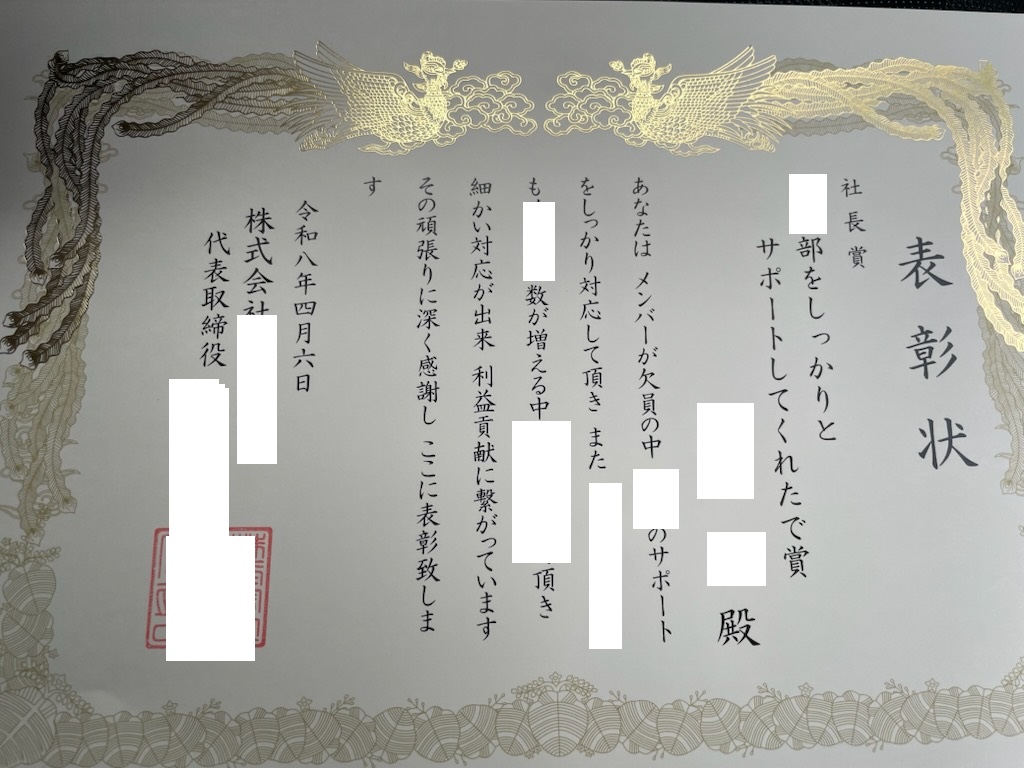 表彰状
社長賞
部をしっかりと
サポートしてくれたで賞
殿
あなたは メンバーが欠員の中 のサポート
をしっかり対応して頂き また
も 数が増える中 頂き
細かい対応が出来 利益貢献に繋がっています
その頑張りに深く感謝し ここに表彰致しま
す
令和八年四月六日
株式会社
代表取締役